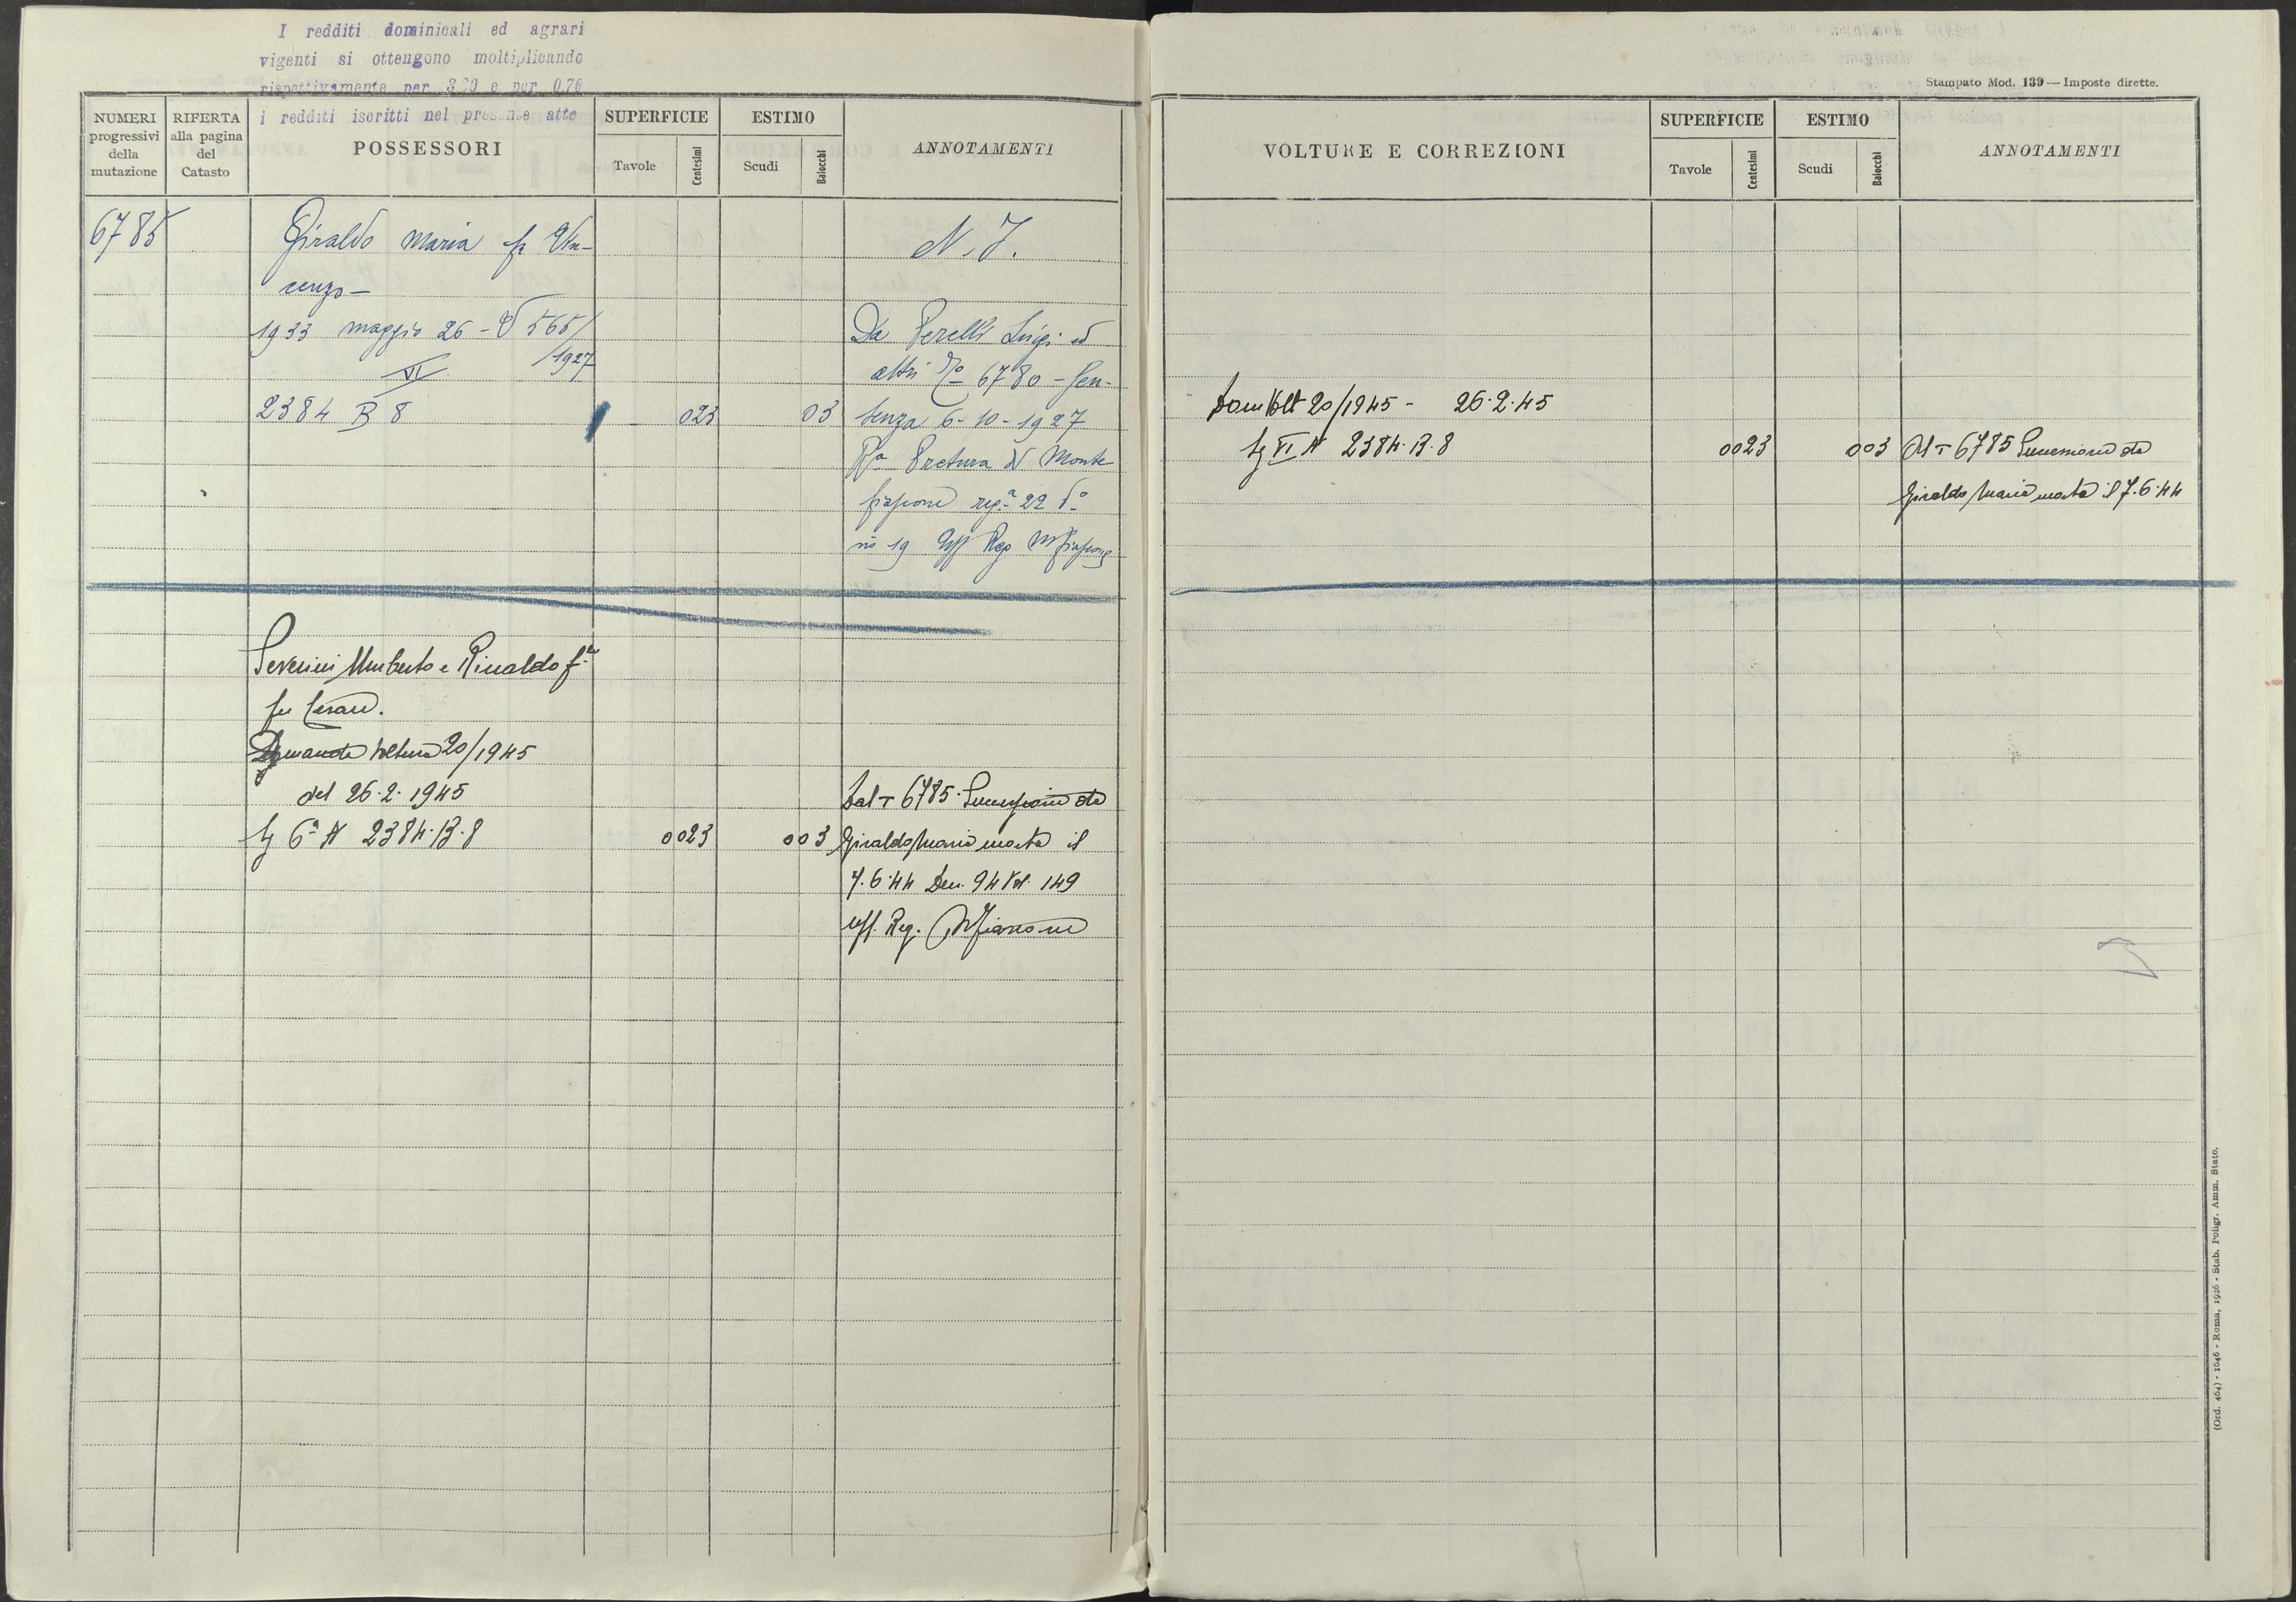 I redditi dominicali ed agrari
vigenti si ottengono moltiplicando
rispettivamente per 3,20 e per 0,76
i redditi iscritti nel presente atto
NUMERI
progressivi
della
mutazione
RIFERTA
alla pagina
del
Catasto
POSSESSORI
SUPERFICIE
Tavole
Centesimi
ESTIMO
Scudi
Baiocchi
ANNOTAMENTI
6785
Giraldo Maria fu Vin-
cenzo -
1933 maggio 26 - V 565/
/1927
VI
2384 B 8
023
03
N. I.
Da Perelli Luigi ed
altri 6780 - Sen-
tenza 6-10-1927
Ra Pretura di Monte
fiascone reg.a 22
no 19 Uff Reg Mfiascone
Severini Umberto e Rinaldo
fu Cesare.
Domanda Voltura 20/1945
del 26.2.1945
Sz 6a N 2384.B.8
0023
003
Dal T 6785. Successione da
Giraldo Maria morta il
7.6.44 Den. 94 Vol. 149
uff. Reg. Mfiascone
Stampato Mod. 139 — Imposte dirette.
VOLTURE E CORREZIONI
SUPERFICIE
Tavole
Centesimi
ESTIMO
Scudi
Baiocchi
ANNOTAMENTI
Dom Volt 20/1945 - 26.2.45
Sz VI N 2384.B.8
0023
003
Al T 6785 Successione da
Giraldo Maria morta il 7.6.44
(Ord. 464) - 1646 - Roma, 1926 - Stab. Poligr. Amm. Stato.